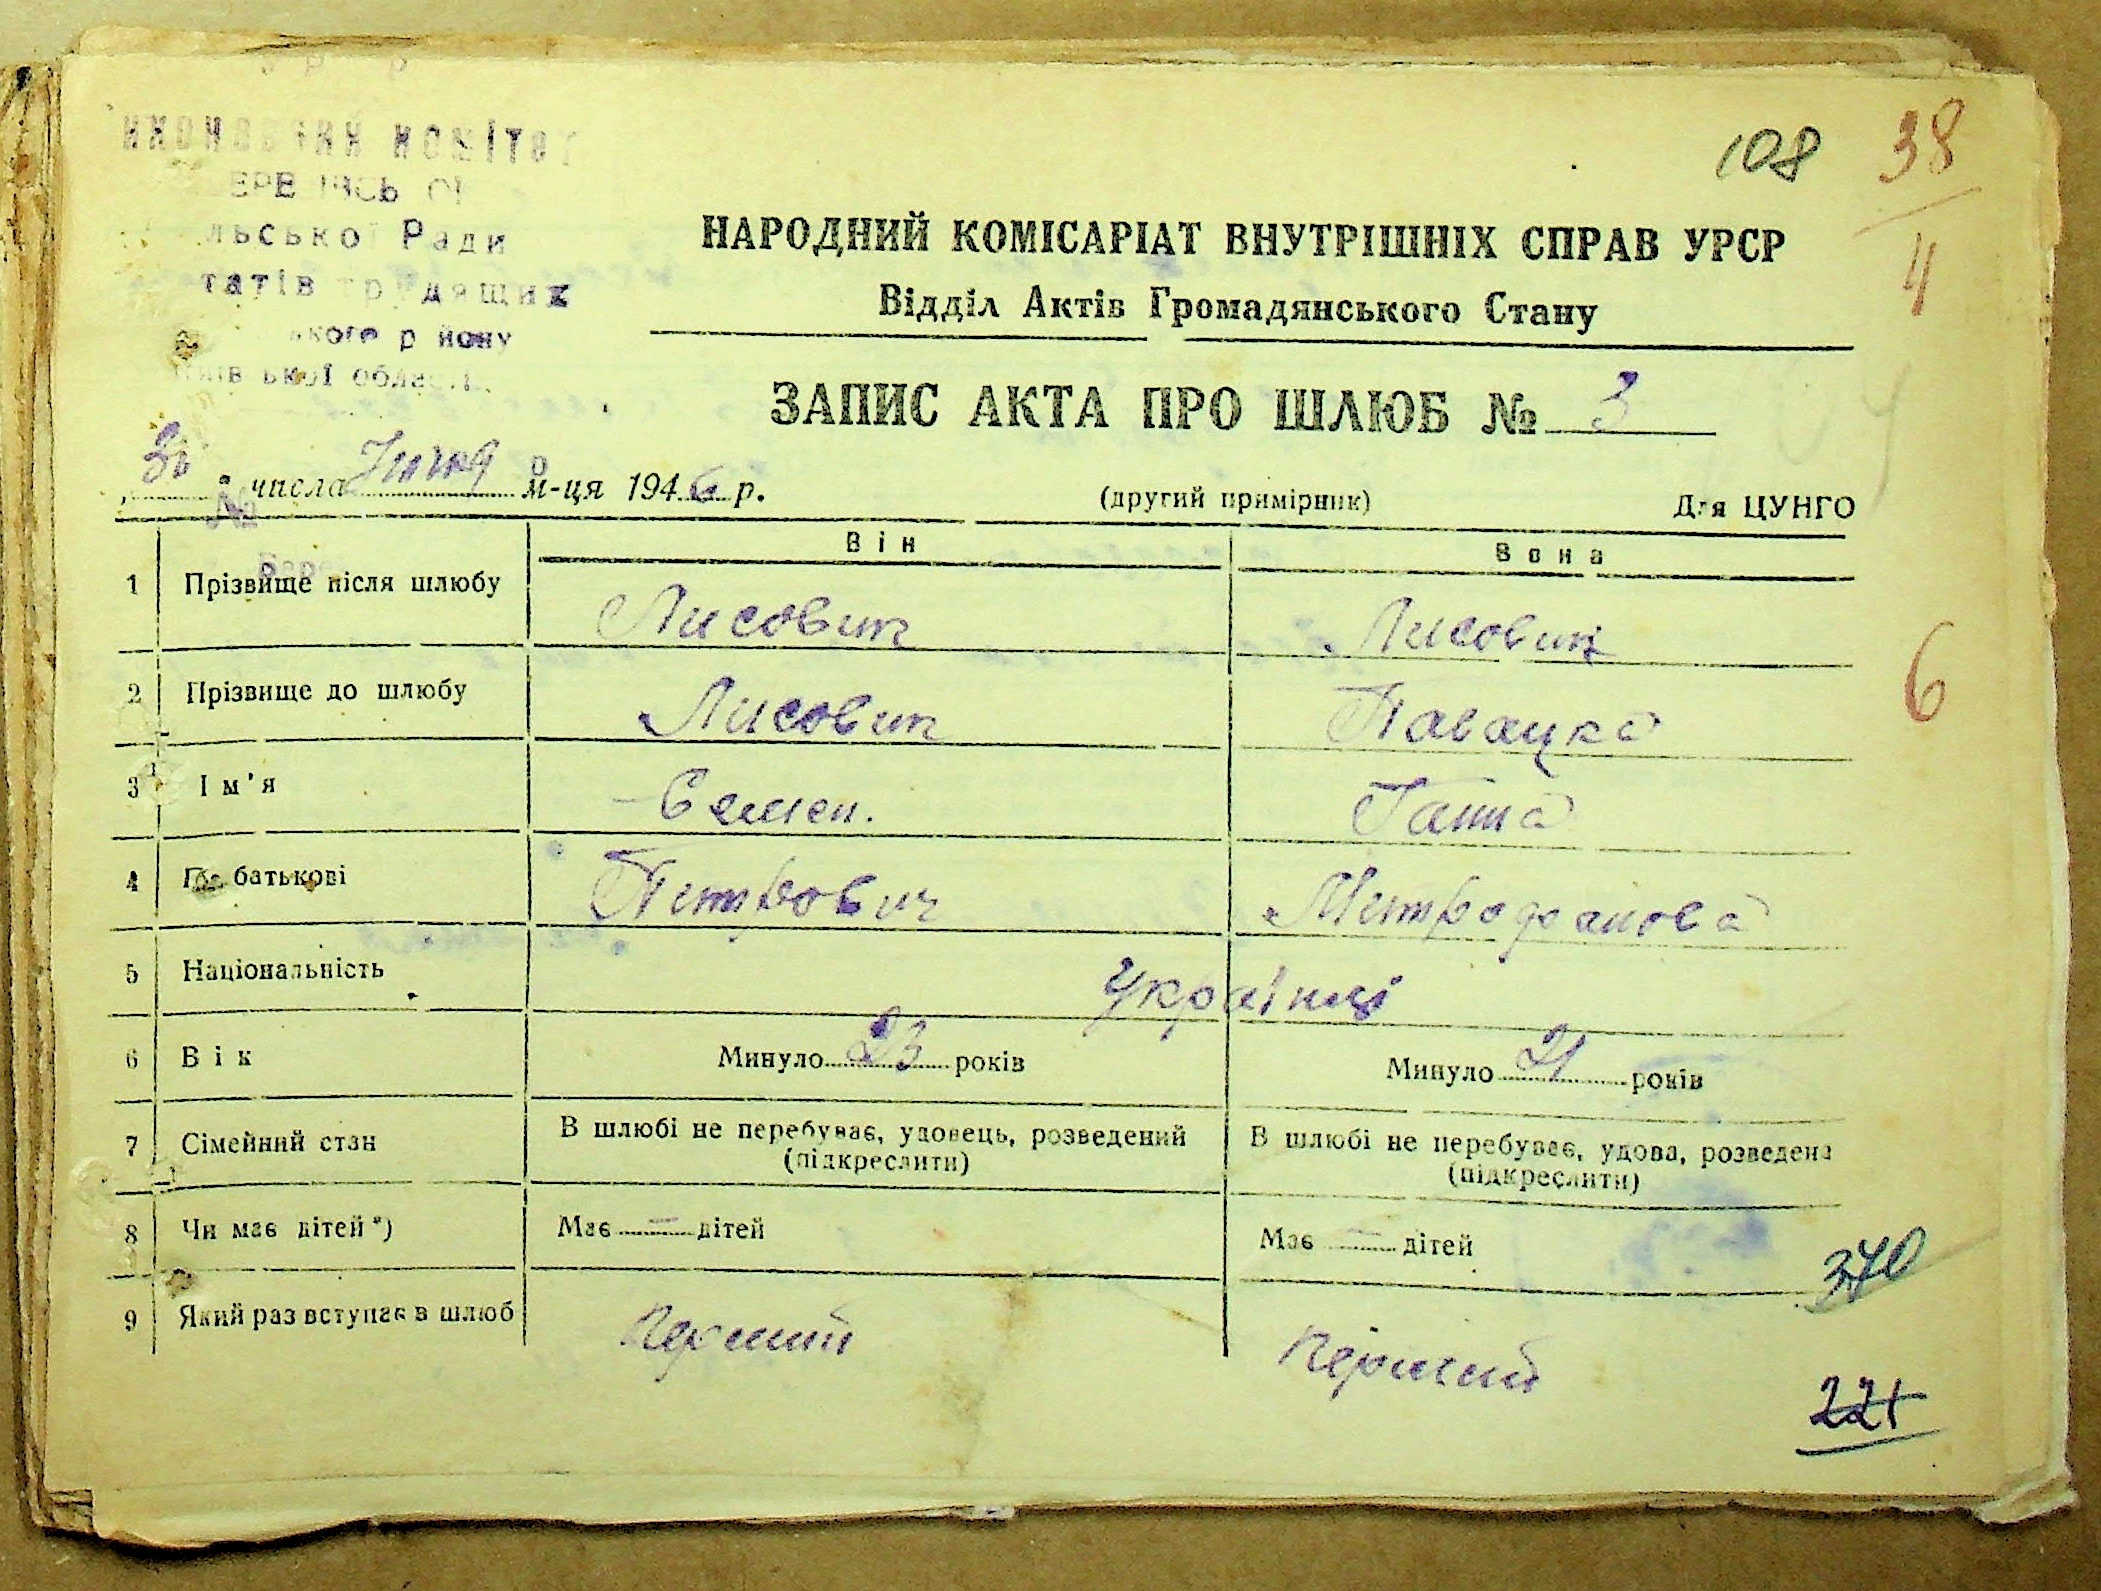 108
38
4
льської Ради
НАРОДНИЙ КОМІСАРІАТ ВНУТРІШНІХ СПРАВ УРСР
Відділ Актів Громадянського Стану
ЗАПИС АКТА ПРО ШЛЮБ № 3
числа м-ця 1946 р.
(другий примірник) Для ЦУНГО
№
Він Вона
1 Прізвище після шлюбу Лисовик Лисовик
2 Прізвище до шлюбу Лисовик
6
3 Ім'я Семен. Ганна
4 По батькові Петрович Метрофанова
5 Національність Українці
6 Вік Минуло 23 років Минуло 21 років
7 Сімейний стан В шлюбі не перебуває, удовець, розведений (підкреслити) В шлюбі не перебуває, удова, розведена (підкреслити)
8 Чи має дітей *) Має — дітей Має — дітей
370
9 Який раз вступає в шлюб Перший Перший
221